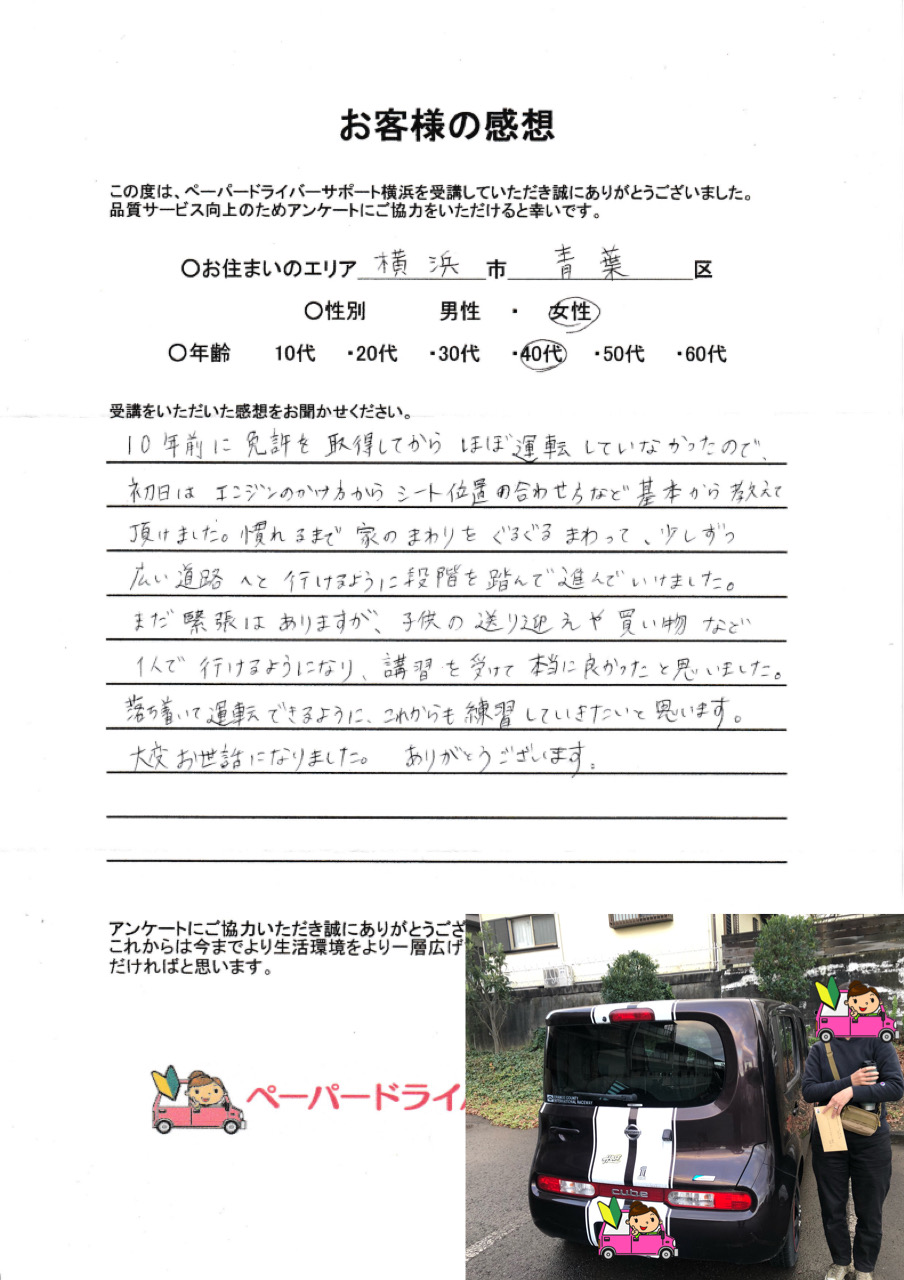 お客様の感想
この度は、ペーパードライバーサポート横浜を受講していただき誠にありがとうございました。
品質サービス向上のためアンケートにご協力をいただけると幸いです。
〇お住まいのエリア 横浜 市 青葉 区
〇性別 男性 ・ 女性
〇年齢 10代 ・20代 ・30代 ・40代 ・50代 ・60代
受講をいただいた感想をお聞かせください。
10年前に免許を取得してからほぼ運転していなかったので、
初日はエンジンのかけ方からシート位置の合わせ方など基本から教えて
頂けました。慣れるまで家のまわりをぐるぐるまわって、少しずつ
広い道路へと行けるように段階を踏んで進んでいけました。
まだ緊張はありますが、子供の送り迎えや買い物など
1人で行けるようになり、講習を受けて本当に良かったと思いました。
落ち着いて運転できるように、これからも練習していきたいと思います。
大変お世話になりました。 ありがとうございます。
アンケートにご協力いただき誠にありがとうござ
これからは今までより生活環境をより一層広げ
だければと思います。
ペーパードライ
cube